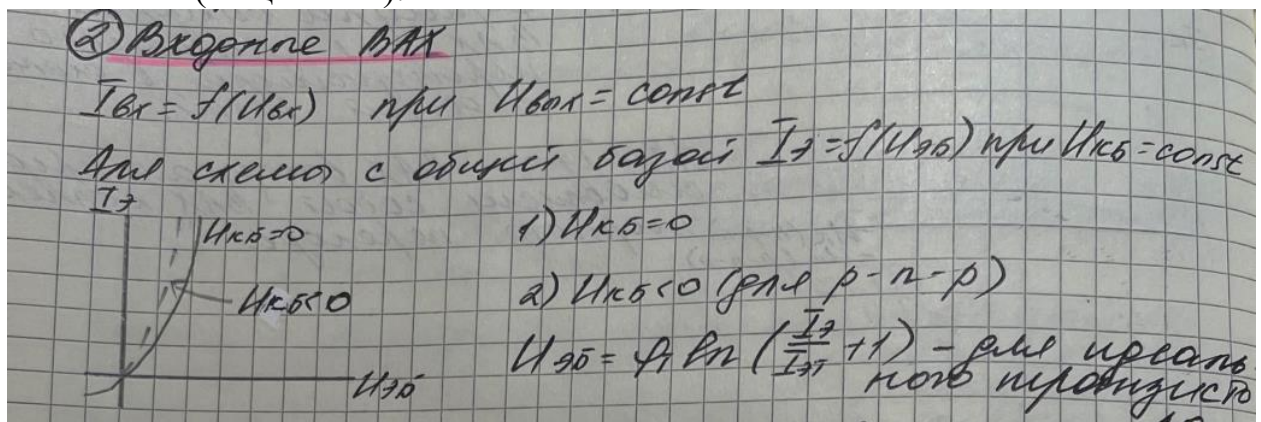 ② Входные ВАХ
Iвх = f(Uвх) при Uвых = const
Для схемы с общей базой Iэ = f(Uэб) при Uкб = const
Iэ
Uкб=0
1) Uкб=0
Uкб<0
2) Uкб<0 (для p-n-p)
Uэб = φт ln (Iэ/Iэт + 1) - для идеаль
Uэб
ного транзисто